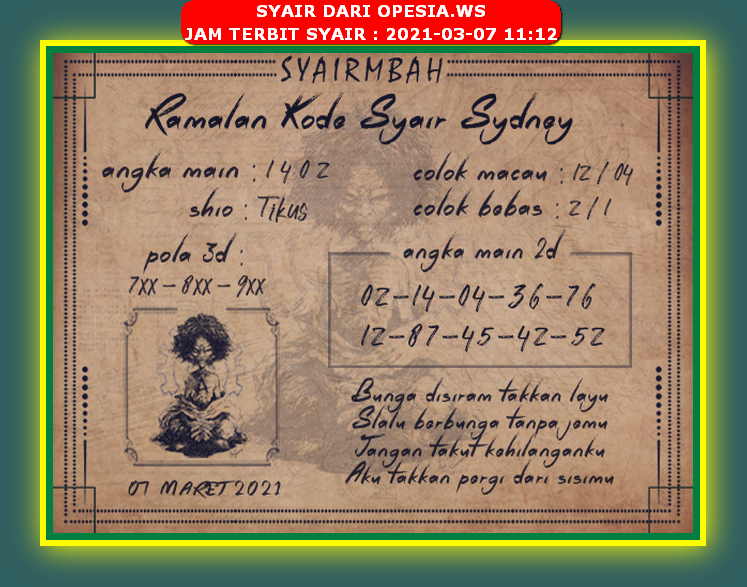 SYAIR DARI OPESIA.WS
JAM TERBIT SYAIR : 2021-03-07 11:12
SYAIRMBAH
Ramalan Kode Syair Sydney
angka main : 1402
colok macau : 12 / 04
shio : Tikus
colok bebas : 2 / 1
pola 3d :
7XX - 8XX - 9XX
angka main 2d
02-14-04-36-76
12-87-45-42-52
Bunga disiram takkan layu
Slalu berbunga tanpa jemu
Jangan takut kehilanganku
Aku takkan pergi dari sisimu
07 MARET 2021